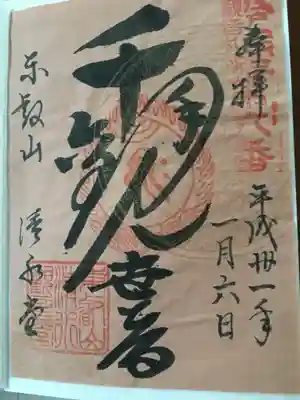 奉拝
平成卅一年
一月六日
千手観世音
東叡山 清水堂